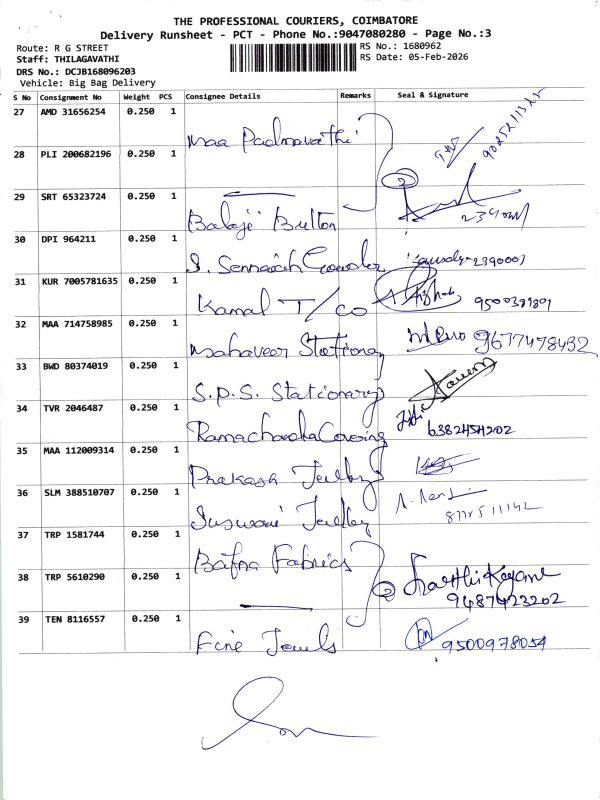 THE PROFESSIONAL COURIERS, COIMBATORE
Delivery Runsheet - PCT - Phone No.:9047080280 - Page No.:3
Route: R G STREET
RS No.: 1680962
Staff: THILAGAVATHI
RS Date: 05-Feb-2026
DRS No.: DCJB168096203
Vehicle: Big Bag Delivery
S No Consignment No Weight PCS Consignee Details Remarks Seal & Signature
27 AMD 31656254 0.250 1 Maa Padmavathi
28 PLI 200682196 0.250 1
2
29 SRT 65323724 0.250 1 Balaji Button
30 DPI 964211 0.250 1 2390007
31 KUR 7005781635 0.250 1 Kamal T/co
32 MAA 714758985 0.250 1 Mahaveer Stationary 9677478432
33 BWD 80374019 0.250 1 S.P.S. Stationary
34 TVR 2046487 0.250 1 Ramachandra Covering 6382454202
35 MAA 112009314 0.250 1 Prakash
36 SLM 388510707 0.250 1
37 TRP 1581744 0.250 1 Bafna Fabrics
38 TRP 5610290 0.250 1 2 9487423202
39 TEN 8116557 0.250 1 Fine Jewels 9500978054